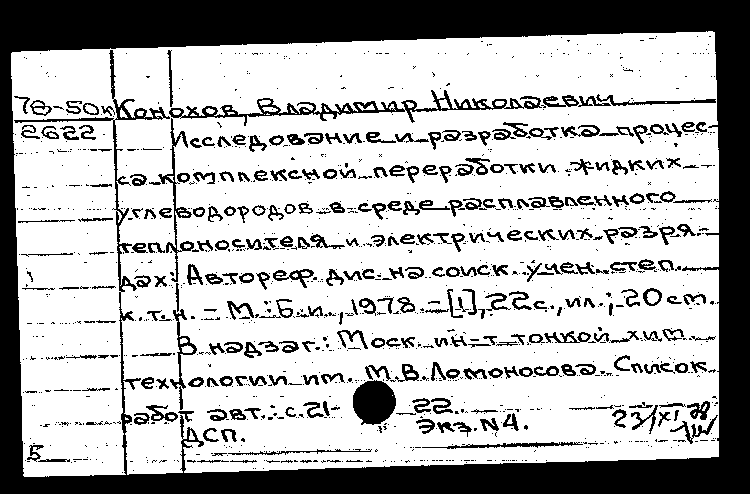 78-50к Конохов, Владимир Николаевич
2622 Исследование и разработка процес-
са комплексной переработки жидких
углеводородов в среде расплавленного
теплоносителя и электрических разря-
дах: Автореф. дис. на соиск. учен. степ.
к. т. н. - М.: Б. и., 1978. - [1], 22 с., ил.; 20 см.
В надзаг.: Моск. ин-т тонкой хим.
технологии им. М.В. Ломоносова. Список
работ авт.: с. 21-22.
ДСП. Экз. N4. 23/XI 78
Б